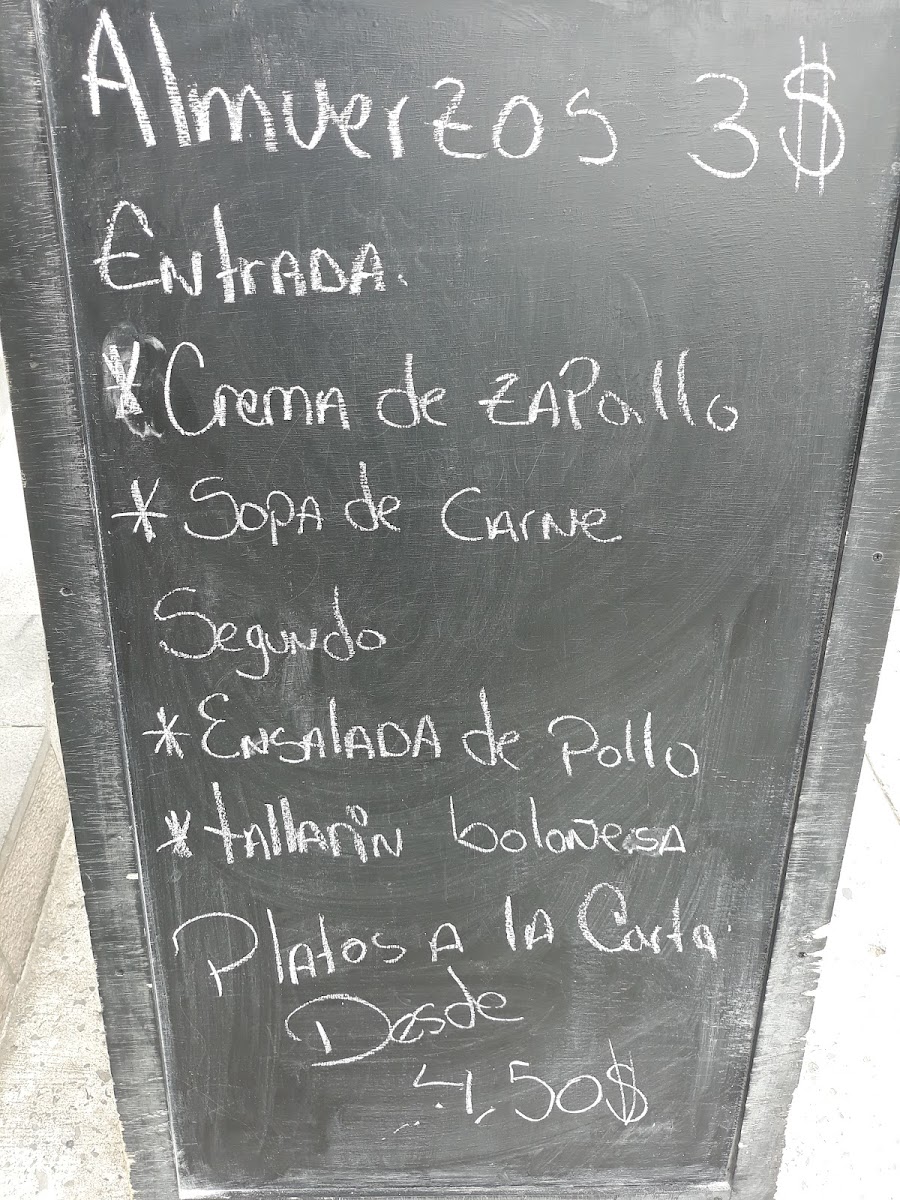 Almuerzos 3$
Entrada.
* Crema de zapallo
* Sopa de carne
Segundo
* Ensalada de Pollo
* tallarin boloñesa
Platos a la Carta
Desde
4,50$